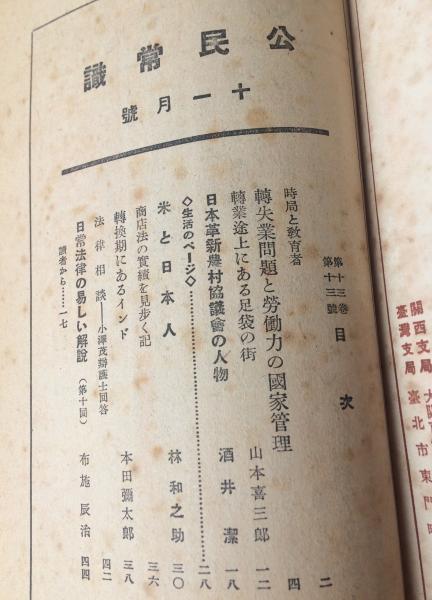 公民常識
十一月號
第十三卷
第十三號
目次
時局と敎育者 二
轉失業問題と勞働力の國家管理 四
轉業途上にある足袋の街 山本喜三郎 一二
日本革新農村協議會の人物 酒井潔 一八
◇生活のページ◇……………二八
米と日本人 林和之助 三〇
商店法の實績を見步く記 三六
轉換期にあるインド 本田彌太郎 三八
法律相談――小澤茂辯護士回答 四二
日常法律の易しい解說(第十回) 布施辰治 四四
讀者から……一七
關西支局 大阪
臺灣支局 臺北市東門町